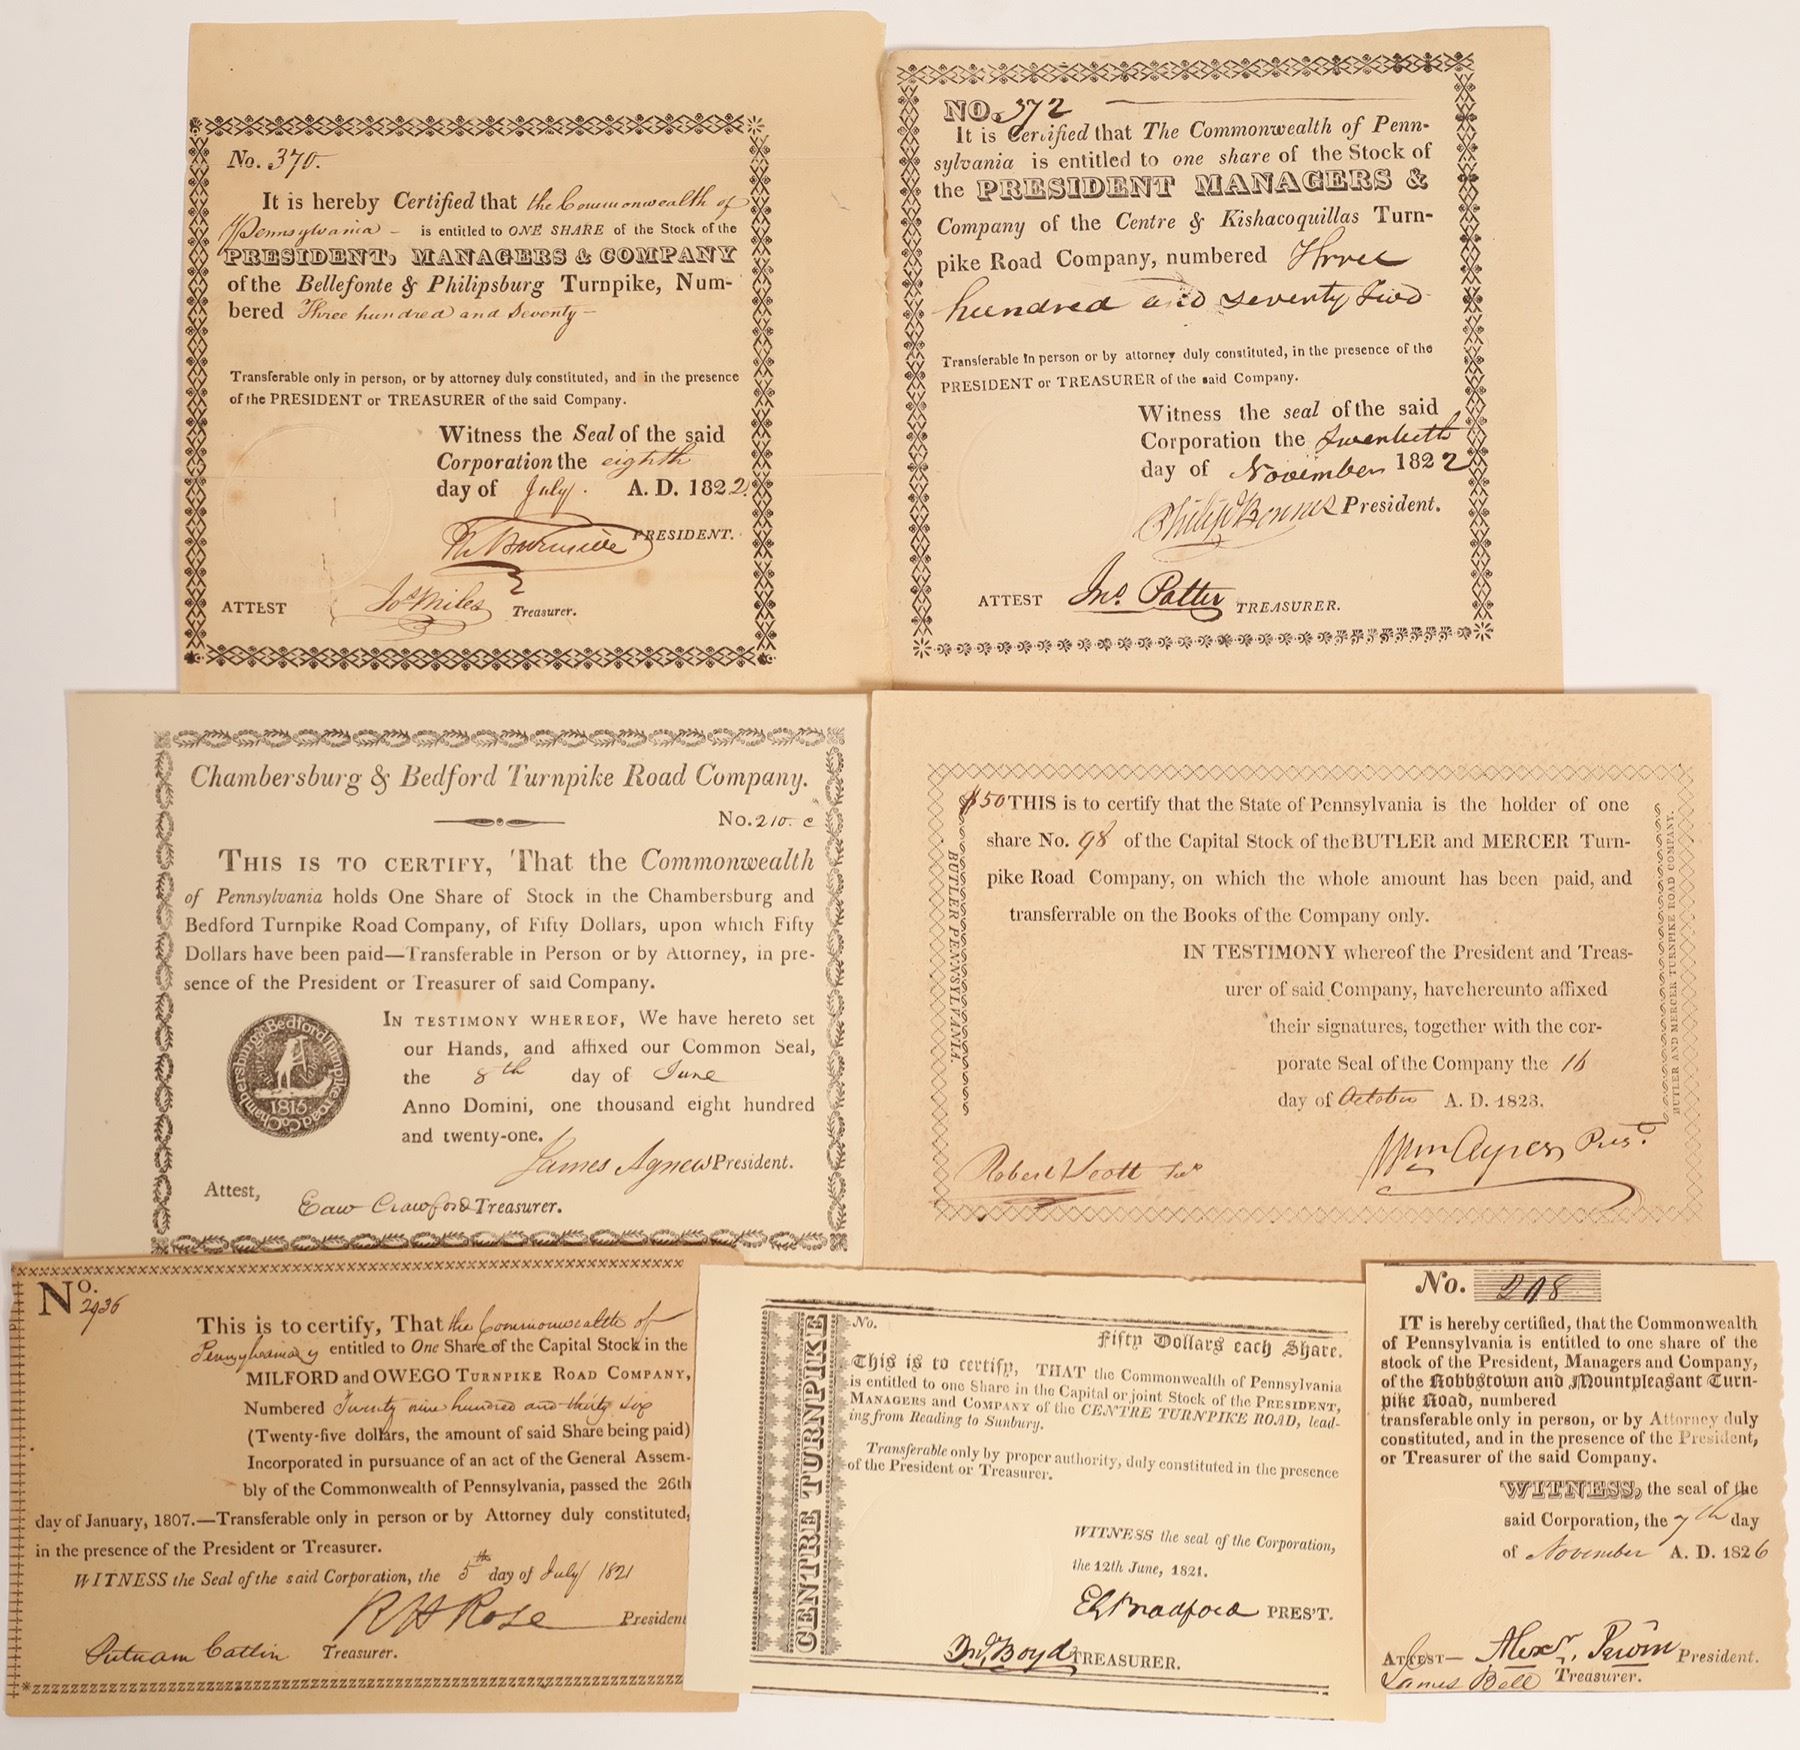 No. 370.
It is hereby Certified that the Commonwealth of
Pennsylvania – is entitled to ONE SHARE of the Stock of the
PRESIDENT, MANAGERS & COMPANY
of the Bellefonte & Philipsburg Turnpike, Num-
bered Three hundred and Seventy –
Transferable only in person, or by attorney duly constituted, and in the presence
of the PRESIDENT or TREASURER of the said Company.
Witness the Seal of the said
Corporation the eighth
day of July. A. D. 1822.
PRESIDENT.
ATTEST Jos Miles Treasurer.
NO. 372
It is Certified that The Commonwealth of Penn-
sylvania is entitled to one share of the Stock of
the PRESIDENT MANAGERS &
Company of the Centre & Kishacoquillas Turn-
pike Road Company, numbered Three
hundred and Seventy Two
Transferable in person or by attorney duly constituted, in the presence of the
PRESIDENT or TREASURER of the said Company.
Witness the seal of the said
Corporation the Twentieth
day of November 1822
Philip Benner President.
ATTEST Jno. Potter TREASURER.
Chambersburg & Bedford Turnpike Road Company.
No. 210. c
THIS IS TO CERTIFY, That the Commonwealth
of Pennsylvania holds One Share of Stock in the Chambersburg and
Bedford Turnpike Road Company, of Fifty Dollars, upon which Fifty
Dollars have been paid—Transferable in Person or by Attorney, in pre-
sence of the President or Treasurer of said Company.
IN TESTIMONY WHEREOF, We have hereto set
our Hands, and affixed our Common Seal,
the 8th day of June
Anno Domini, one thousand eight hundred
and twenty-one.
James Agnew President.
Attest, Edw Crawford Treasurer.
Chambersburg & Bedford Turnpike road Co.
1815
$50 THIS is to certify that the State of Pennsylvania is the holder of one
share No. 98 of the Capital Stock of the BUTLER and MERCER Turn-
pike Road Company, on which the whole amount has been paid, and
transferrable on the Books of the Company only.
IN TESTIMONY whereof the President and Treas-
urer of said Company, have hereunto affixed
their signatures, together with the cor-
porate Seal of the Company the 16
day of October A. D. 1823.
Robert Scott Wm Ayres Prest.
BUTLER PENNSYLVANIA.
BUTLER AND MERCER TURNPIKE ROAD COMPANY.
No. 2936
This is to certify, That the Commonwealth of
Pennsylvania is entitled to One Share of the Capital Stock in the
MILFORD and OWEGO TURNPIKE ROAD COMPANY,
Numbered Twenty nine hundred and thirty six
(Twenty-five dollars, the amount of said Share being paid)
Incorporated in pursuance of an act of the General Assem-
bly of the Commonwealth of Pennsylvania, passed the 26th
day of January, 1807.—Transferable only in person or by Attorney duly constituted,
in the presence of the President or Treasurer.
WITNESS the Seal of the said Corporation, the 5th day of July 1821
R H Rose President
Putnam Catlin Treasurer.
CENTRE TURNPIKE
No.
Fifty Dollars each Share.
This is to certify, THAT the Commonwealth of Pennsylvania
is entitled to one Share in the Capital or joint Stock of the PRESIDENT,
MANAGERS and COMPANY of the CENTRE TURNPIKE ROAD, lead-
ing from Reading to Sunbury.
Transferable only by proper authority, duly constituted in the presence
of the President or Treasurer.
WITNESS the seal of the Corporation,
the 12th June, 1821.
Eb Bradford PRES'T.
Jno. Boyd TREASURER.
No. 208
IT is hereby certified, that the Commonwealth
of Pennsylvania is entitled to one share of the
stock of the President, Managers and Company,
of the Robbstown and Mountpleasant Turn-
pike Road, numbered
transferable only in person, or by Attorney duly
constituted, and in the presence of the President,
or Treasurer of the said Company.
WITNESS, the seal of the
said Corporation, the 7th day
of November A. D. 1826
ATTEST— Alexr. Irwin President.
James Bell Treasurer.